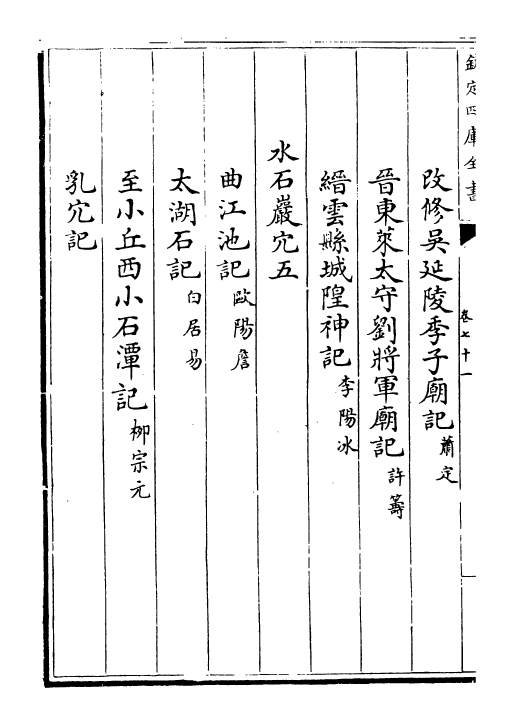 欽定四庫全書
卷七十一
改修吳延陵季子廟記 蕭定
晉東萊太守劉將軍廟記 許籌
縉雲縣城隍神記 李陽冰
水石巖穴五
曲江池記 歐陽詹
太湖石記 白居易
至小丘西小石潭記 柳宗元
乳穴記